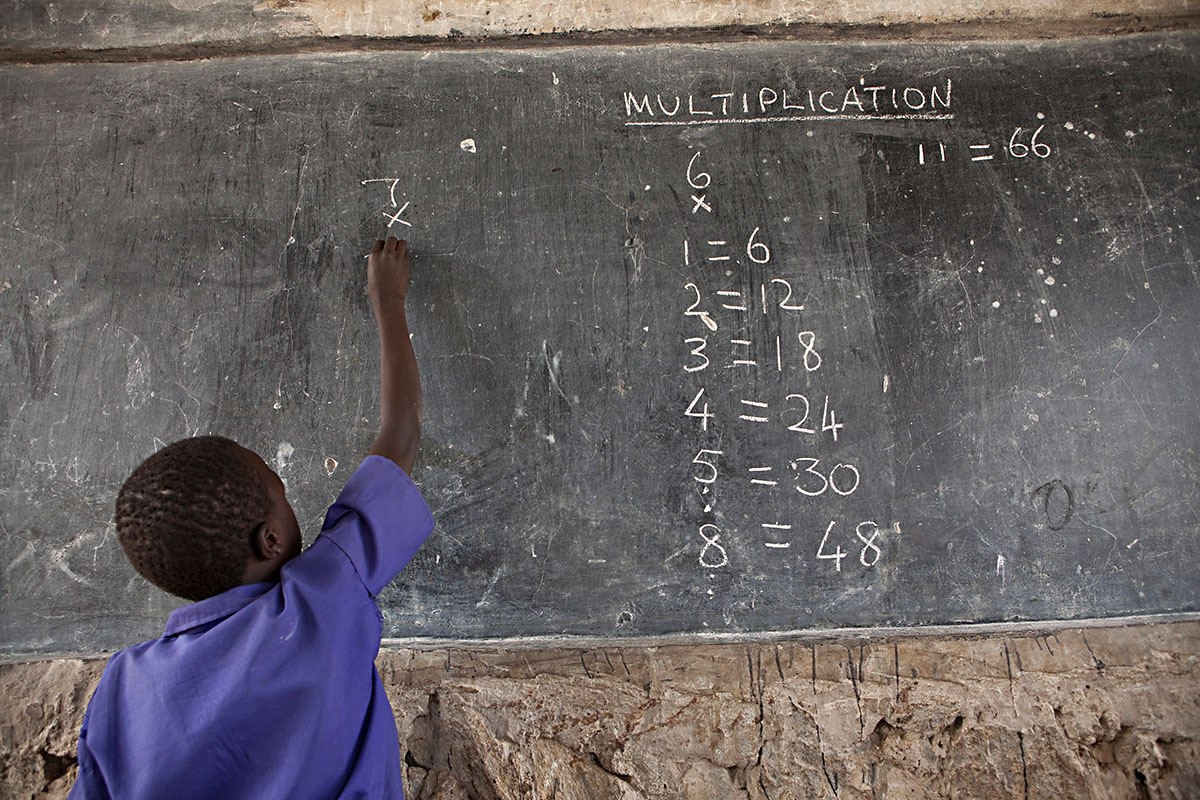 MULTIPLICATION
11 = 66
7
x
6
x
1 = 6
2 = 12
3 = 18
4 = 24
5 = 30
8 = 48